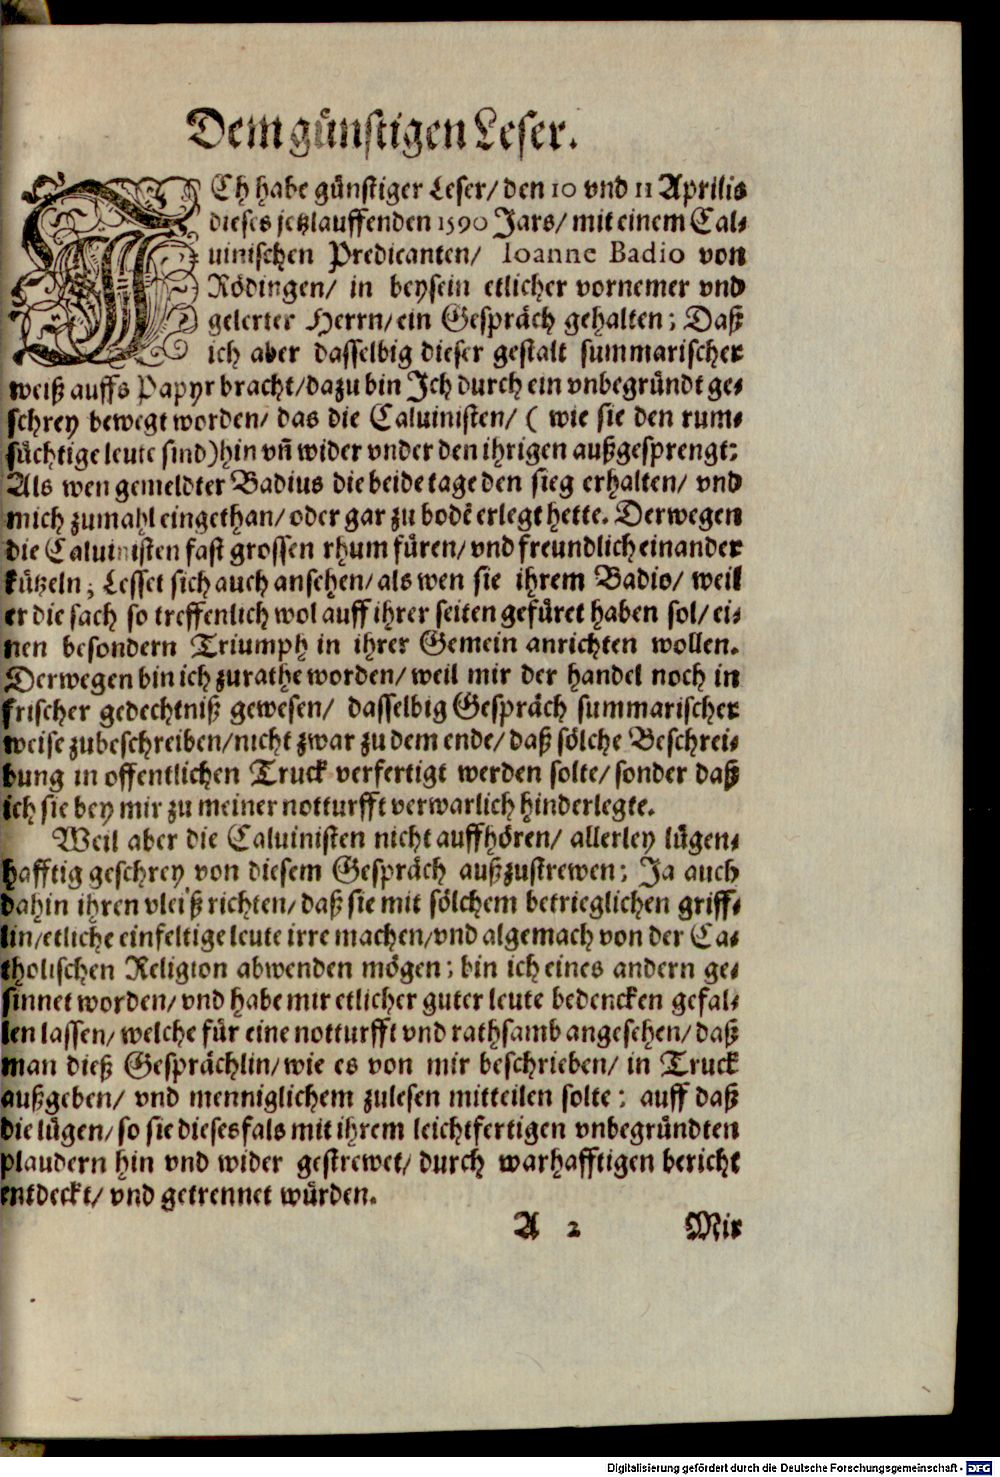 Dem günstigen Leser.
ICh habe günstiger Leser/ den 10 vnd 11 Aprilis
dieses jetzlauffenden 1590 Jars/ mit einem Cal-
uinischen Predicanten/ Ioanne Badio von
Rödingen/ in beysein etlicher vornemer vnd
gelerter Herrn/ ein Gespräch gehalten; Daß
ich aber dasselbig dieser gestalt summarischer
weiß auffs Papyr bracht/ dazu bin Jch durch ein vnbegründt ge-
schrey bewegt worden/ das die Caluinisten/ ( wie sie den rum-
süchtige leute sind) hin vñ wider vnder den ihrigen außgesprengt:
Als wen gemeldter Badius die beide tage den sieg erhalten/ vnd
mich zumahl eingethan/ oder gar zu bodē erlegt hette. Derwegen
die Caluinisten fast grossen rhum füren/ vnd freundlich einander
kützeln; Lesset sich auch ansehen/ als wen sie ihrem Badio/ weil
er die sach so treffenlich wol auff ihrer seiten gefüret haben sol/ ei-
nen besondern Triumph in ihrer Gemein anrichten wollen.
Derwegen bin ich zu rathe worden/ weil mir der handel noch in
frischer gedechtniß gewesen/ dasselbig Gespräch summarischer
weise zubeschreiben/ nicht zwar zu dem ende/ daß sölche Beschrei-
bung in offentlichen Truck verfertigt werden solte/ sonder daß
ich sie bey mir zu meiner notturfft verwarlich hinderlegte.
Weil aber die Caluinisten nicht auffhören/ allerley lügen-
hafftig geschrey von diesem Gespräch außzustrewen; Ja auch
dahin ihren vleiß richten/ daß sie mit sölchem betrieglichen griff-
lin/ etliche einfeltige leute irre machen/ vnd algemach von der Ca-
tholischen Religion abwenden mögen; bin ich eines andern ge-
sinnet worden/ vnd habe mir etlicher guter leute bedencken gefal-
len lassen/ welche für eine notturfft vnd rathsamb angesehen/ daß
man dieß Gesprächlin/ wie es von mir beschrieben/ in Truck
außgeben/ vnd menniglichem zulesen mitteilen solte; auff daß
die lügen/ so sie diesesfals mit ihrem leichtfertigen vnbegründten
plaudern hin vnd wider gestrewet/ durch warhafftigen bericht
entdeckt/ vnd getrennet würden.
A 2 Mir
Digitalisierung gefördert durch die Deutsche Forschungsgemeinschaft - DFG